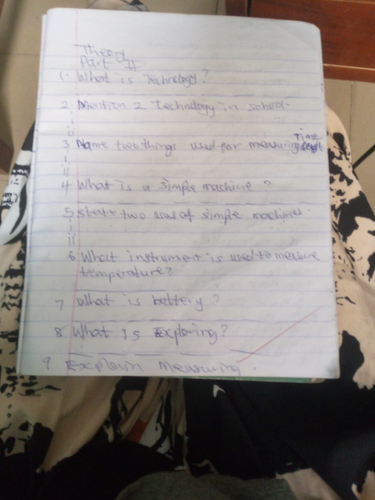 Theory
Part II
1. What is Technology?
2. Mention 2 Technology in school.
i
ii
3 Name two things used for measuring Time
i
ii
4 What is a simple machine?
5 state two of simple machines.
i
ii
6 What instrument is used to measure
temperature?
7 What is battery?
8 What is Exploring?
9 Explain measuring.